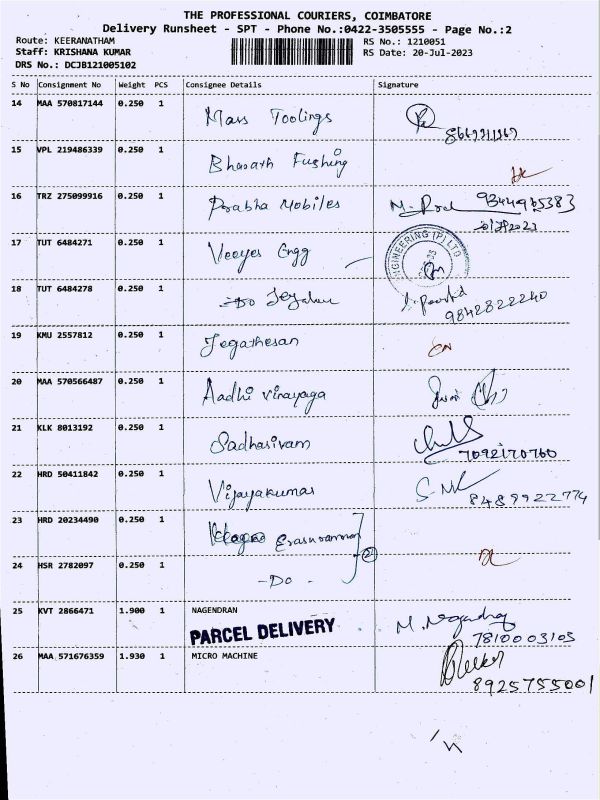 THE PROFESSIONAL COURIERS, COIMBATORE
Delivery Runsheet - SPT - Phone No.:0422-3505555 - Page No.:2
Route: KEERANATHAM
RS No.: 1210051
Staff: KRISHANA KUMAR
RS Date: 20-Jul-2023
DRS No.: DCJB121005102
S No Consignment No Weight PCS Consignee Details Signature
14 MAA 570817144 0.250 1 Mass Toolings
15 VPL 219486339 0.250 1 Bharath Fushing
16 TRZ 275099916 0.250 1 Prabha Mobiles 9344965383
17 TUT 6484271 0.250 1 Veeyes Engg
ENGINEERING (P) LTD
18 TUT 6484278 0.250 1 - Do 9842822240
19 KMU 2557812 0.250 1 Jegathesan
20 MAA 570566487 0.250 1 Aadhi Vinayaga
21 KLK 8013192 0.250 1 Sadhasivam 7092170760
22 HRD 50411842 0.250 1 Vijayakumar 8489922774
23 HRD 20234490 0.250 1
2
24 HSR 2782097 0.250 1 - Do -
25 KVT 2866471 1.900 1 NAGENDRAN
PARCEL DELIVERY
7810003103
26 MAA 571676359 1.930 1 MICRO MACHINE
8925755001